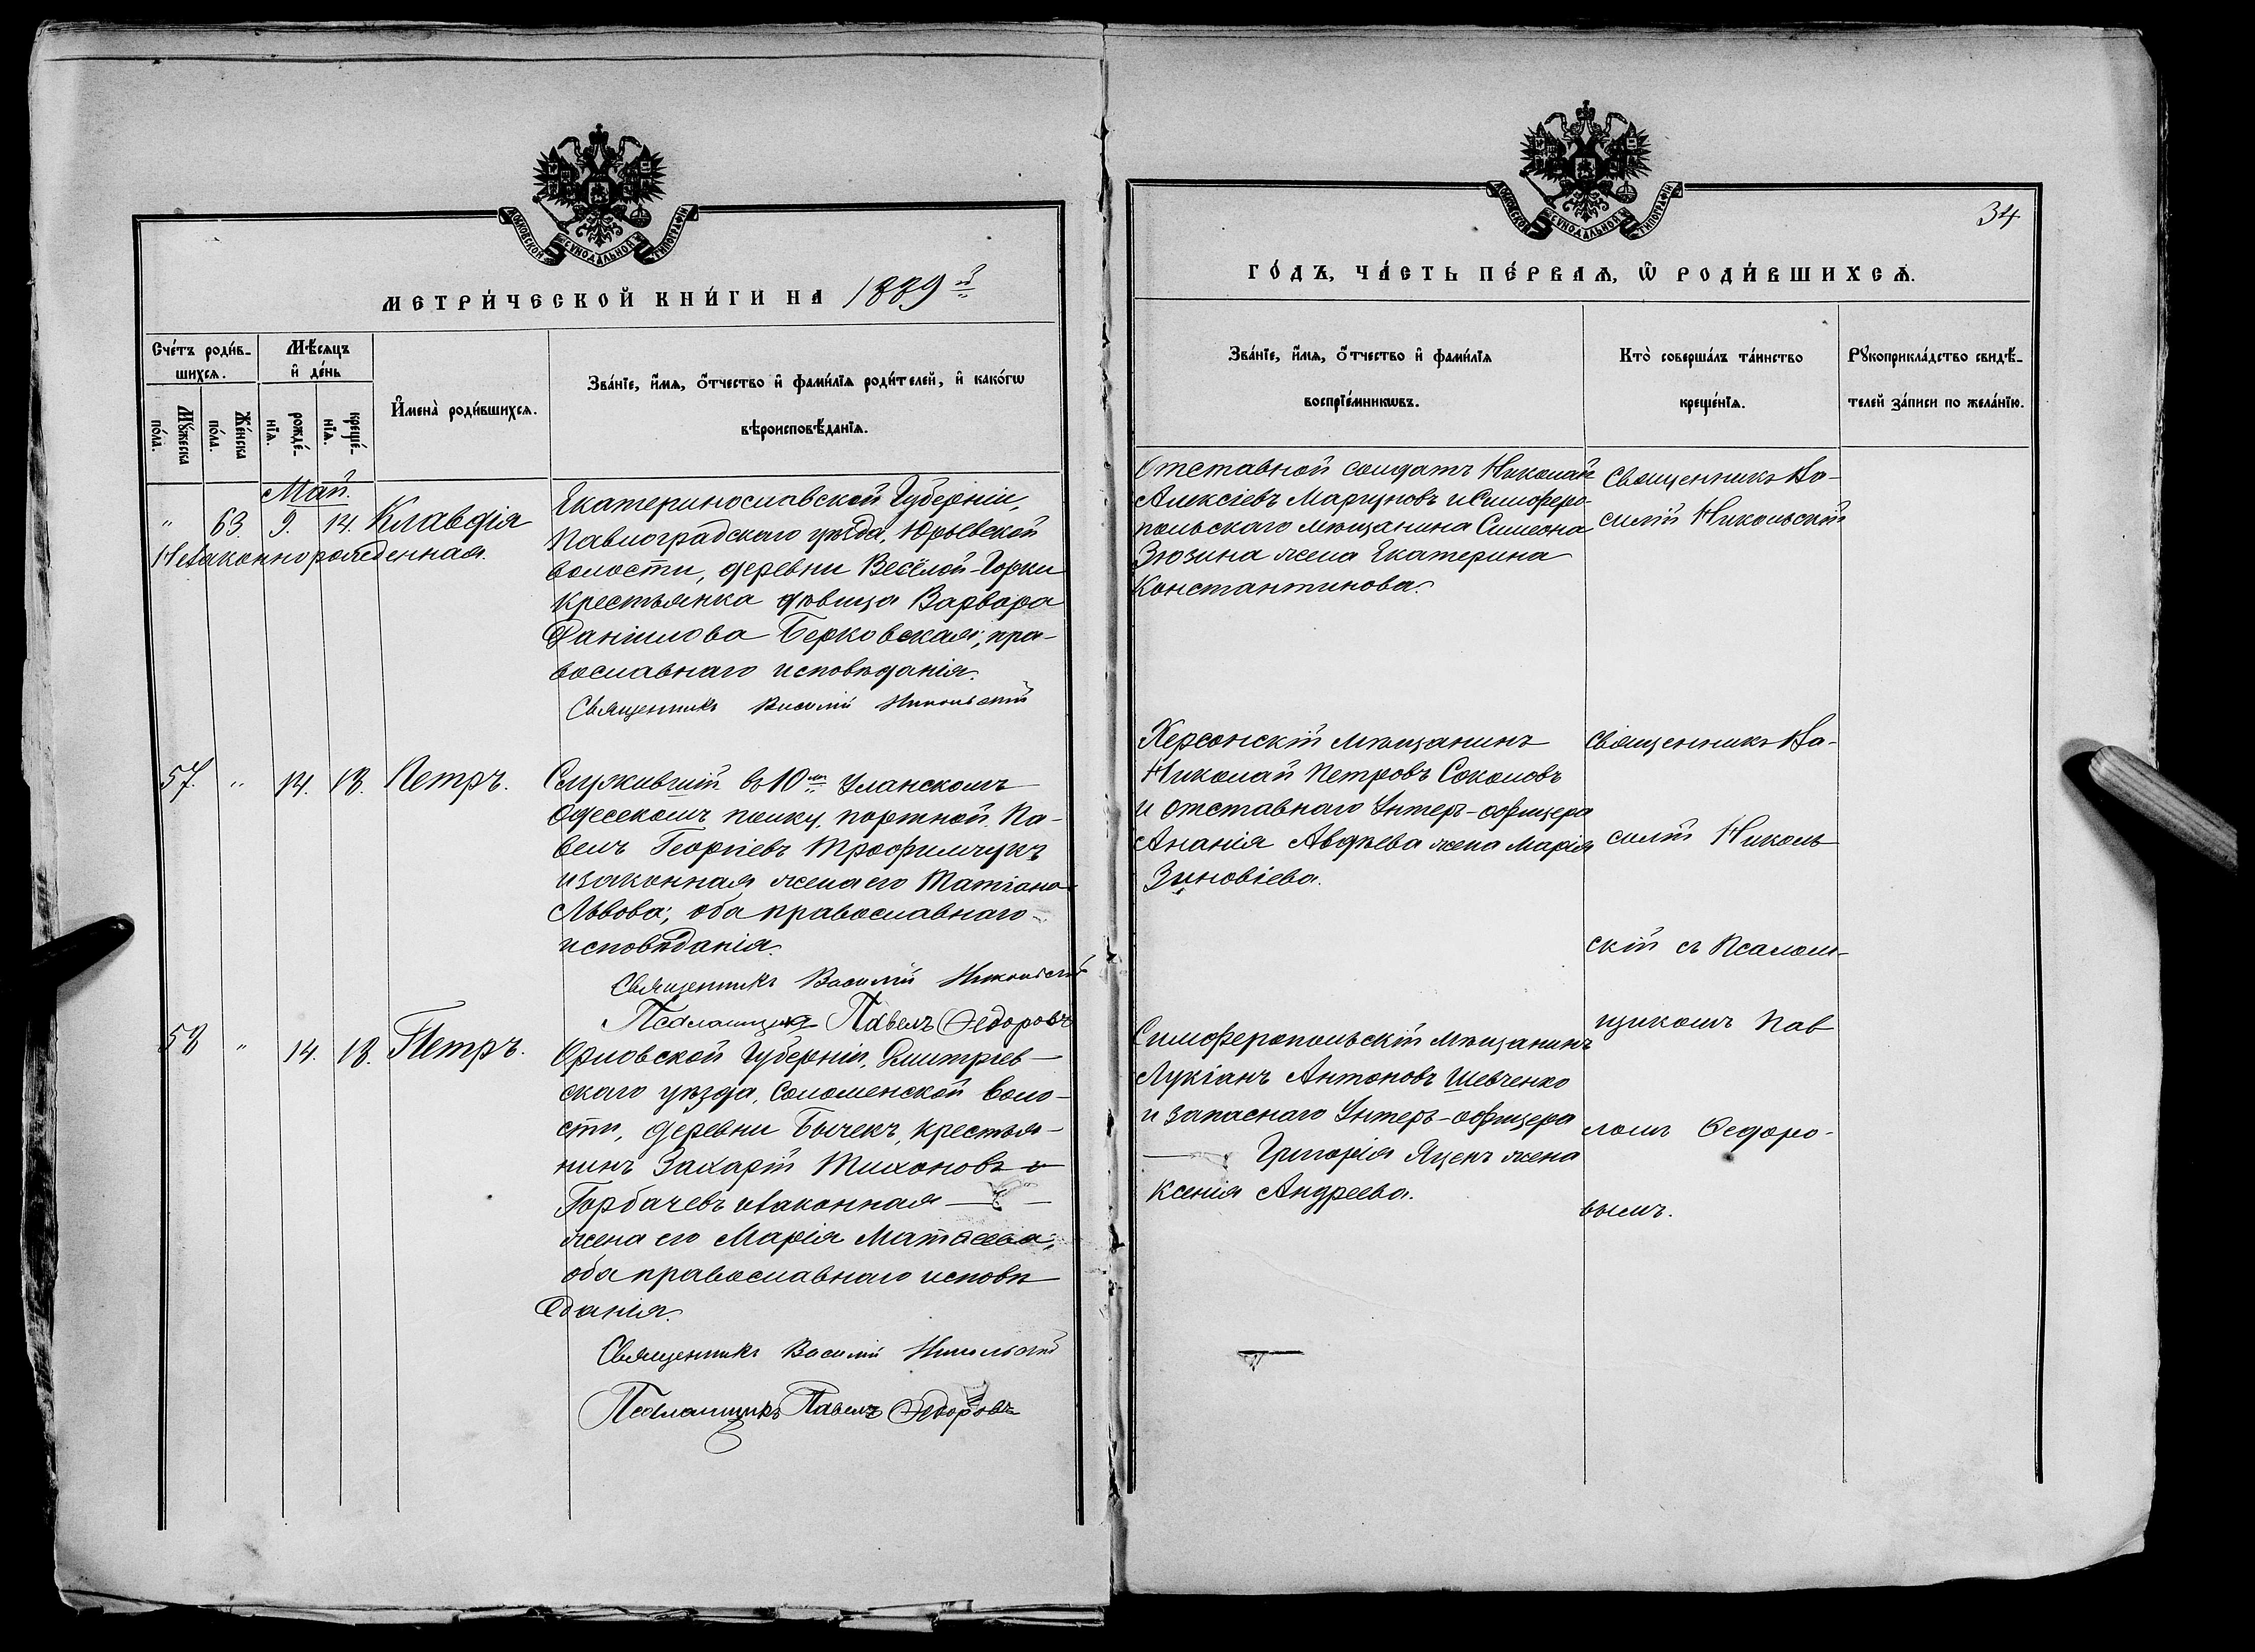 МОСКОВСКОЙ СѴНОДАЛЬНОЙ ТИПОГРАФІИ
МЕТРИ́ЧЕСКОЙ КНИ́ГИ НА 1889й
Сче́тъ роди́в-
шихсѧ.
Мꙋ́жеска
по́ла.
Же́нска
по́ла.
Мѣ́сѧцъ
и҆ де́нь
рожде́-
нїѧ.
креще́-
нїѧ.
И҆мена̀ роди́вшихсѧ.
Зва́нїе, и҆́мѧ, ѻ҆́тчество и҆ фами́лїѧ роди́телей, и҆ како́гѡ
вѣроисповѣ́данїѧ.
Май.
" 63. 9. 14. Клавдія
Незаконнорожденная.
Екатеринославской Губерніи,
Павлоградскаго уѣзда, Юрьевской
волости, деревни Весёлой-Горки
крестьянка дѣвица Варвара
Даніилова Берковская; пра-
вославнаго исповѣданія.
Священникъ Василій Никольскій
57. " 14. 18. Петръ.
Служившій въ 10м Уланскомъ
Одесскомъ полку, портной, Па-
велъ Георгіевъ Трофимчукъ
и законная жена его Татіана
Львова; оба православнаго
исповѣданія.
Священникъ Василій Никольскій
Псаломщикъ Павелъ Ѳедоровъ
58 " 14. 18. Петръ.
Орловской Губерніи, Дмитріев-
скаго уѣзда, Соломенской воло-
сти, деревни Бычекъ, крестья-
нинъ Захарій Тихоновъ
Горбачевъ и законная
жена его Марія Матѳеева;
оба православнаго исповѣ
данія.
Священникъ Василій Никольскій
Псаломщикъ Павелъ Ѳедоровъ
МОСКОВСКОЙ СѴНОДАЛЬНОЙ ТИПОГРАФІИ
34
ГО́ДЪ, ЧА́СТЬ ПЕ́РВАѦ, Ѡ҆ РОДИ́ВШИХСѦ.
Зва́нїе, и҆́мѧ, ѻ҆́тчество и҆ фами́лїѧ
воспрїе́мникѡвъ.
Кто̀ соверша́лъ та́инство
креще́нїѧ.
Рꙋкоприкла́дство свидѣ́-
телей за́писи по жела́нїю.
Отставной солдатъ Николай
Алексіевъ Марцуновъ и Симферо-
польскаго мѣщанина Симеона
Зюзина жена Екатерина
Константинова.
Священникъ Ва-
силій Никольскій
Херсонскій мѣщанинъ
Николай Петровъ Соколовъ
и отставнаго Унтеръ-офицера
Ананія Авдѣева жена Марія
Зиновіева.
Священникъ Ва-
силій Николь-
скій съ Псалом-
щикомъ Пав
ломъ Ѳедоро-
вымъ.
Симферопольскій мѣщанинъ
Лукіанъ Антоновъ Шевченко
и запаснаго Унтеръ-офицера
Григорія Яценъ жена
Ксенія Андреева.